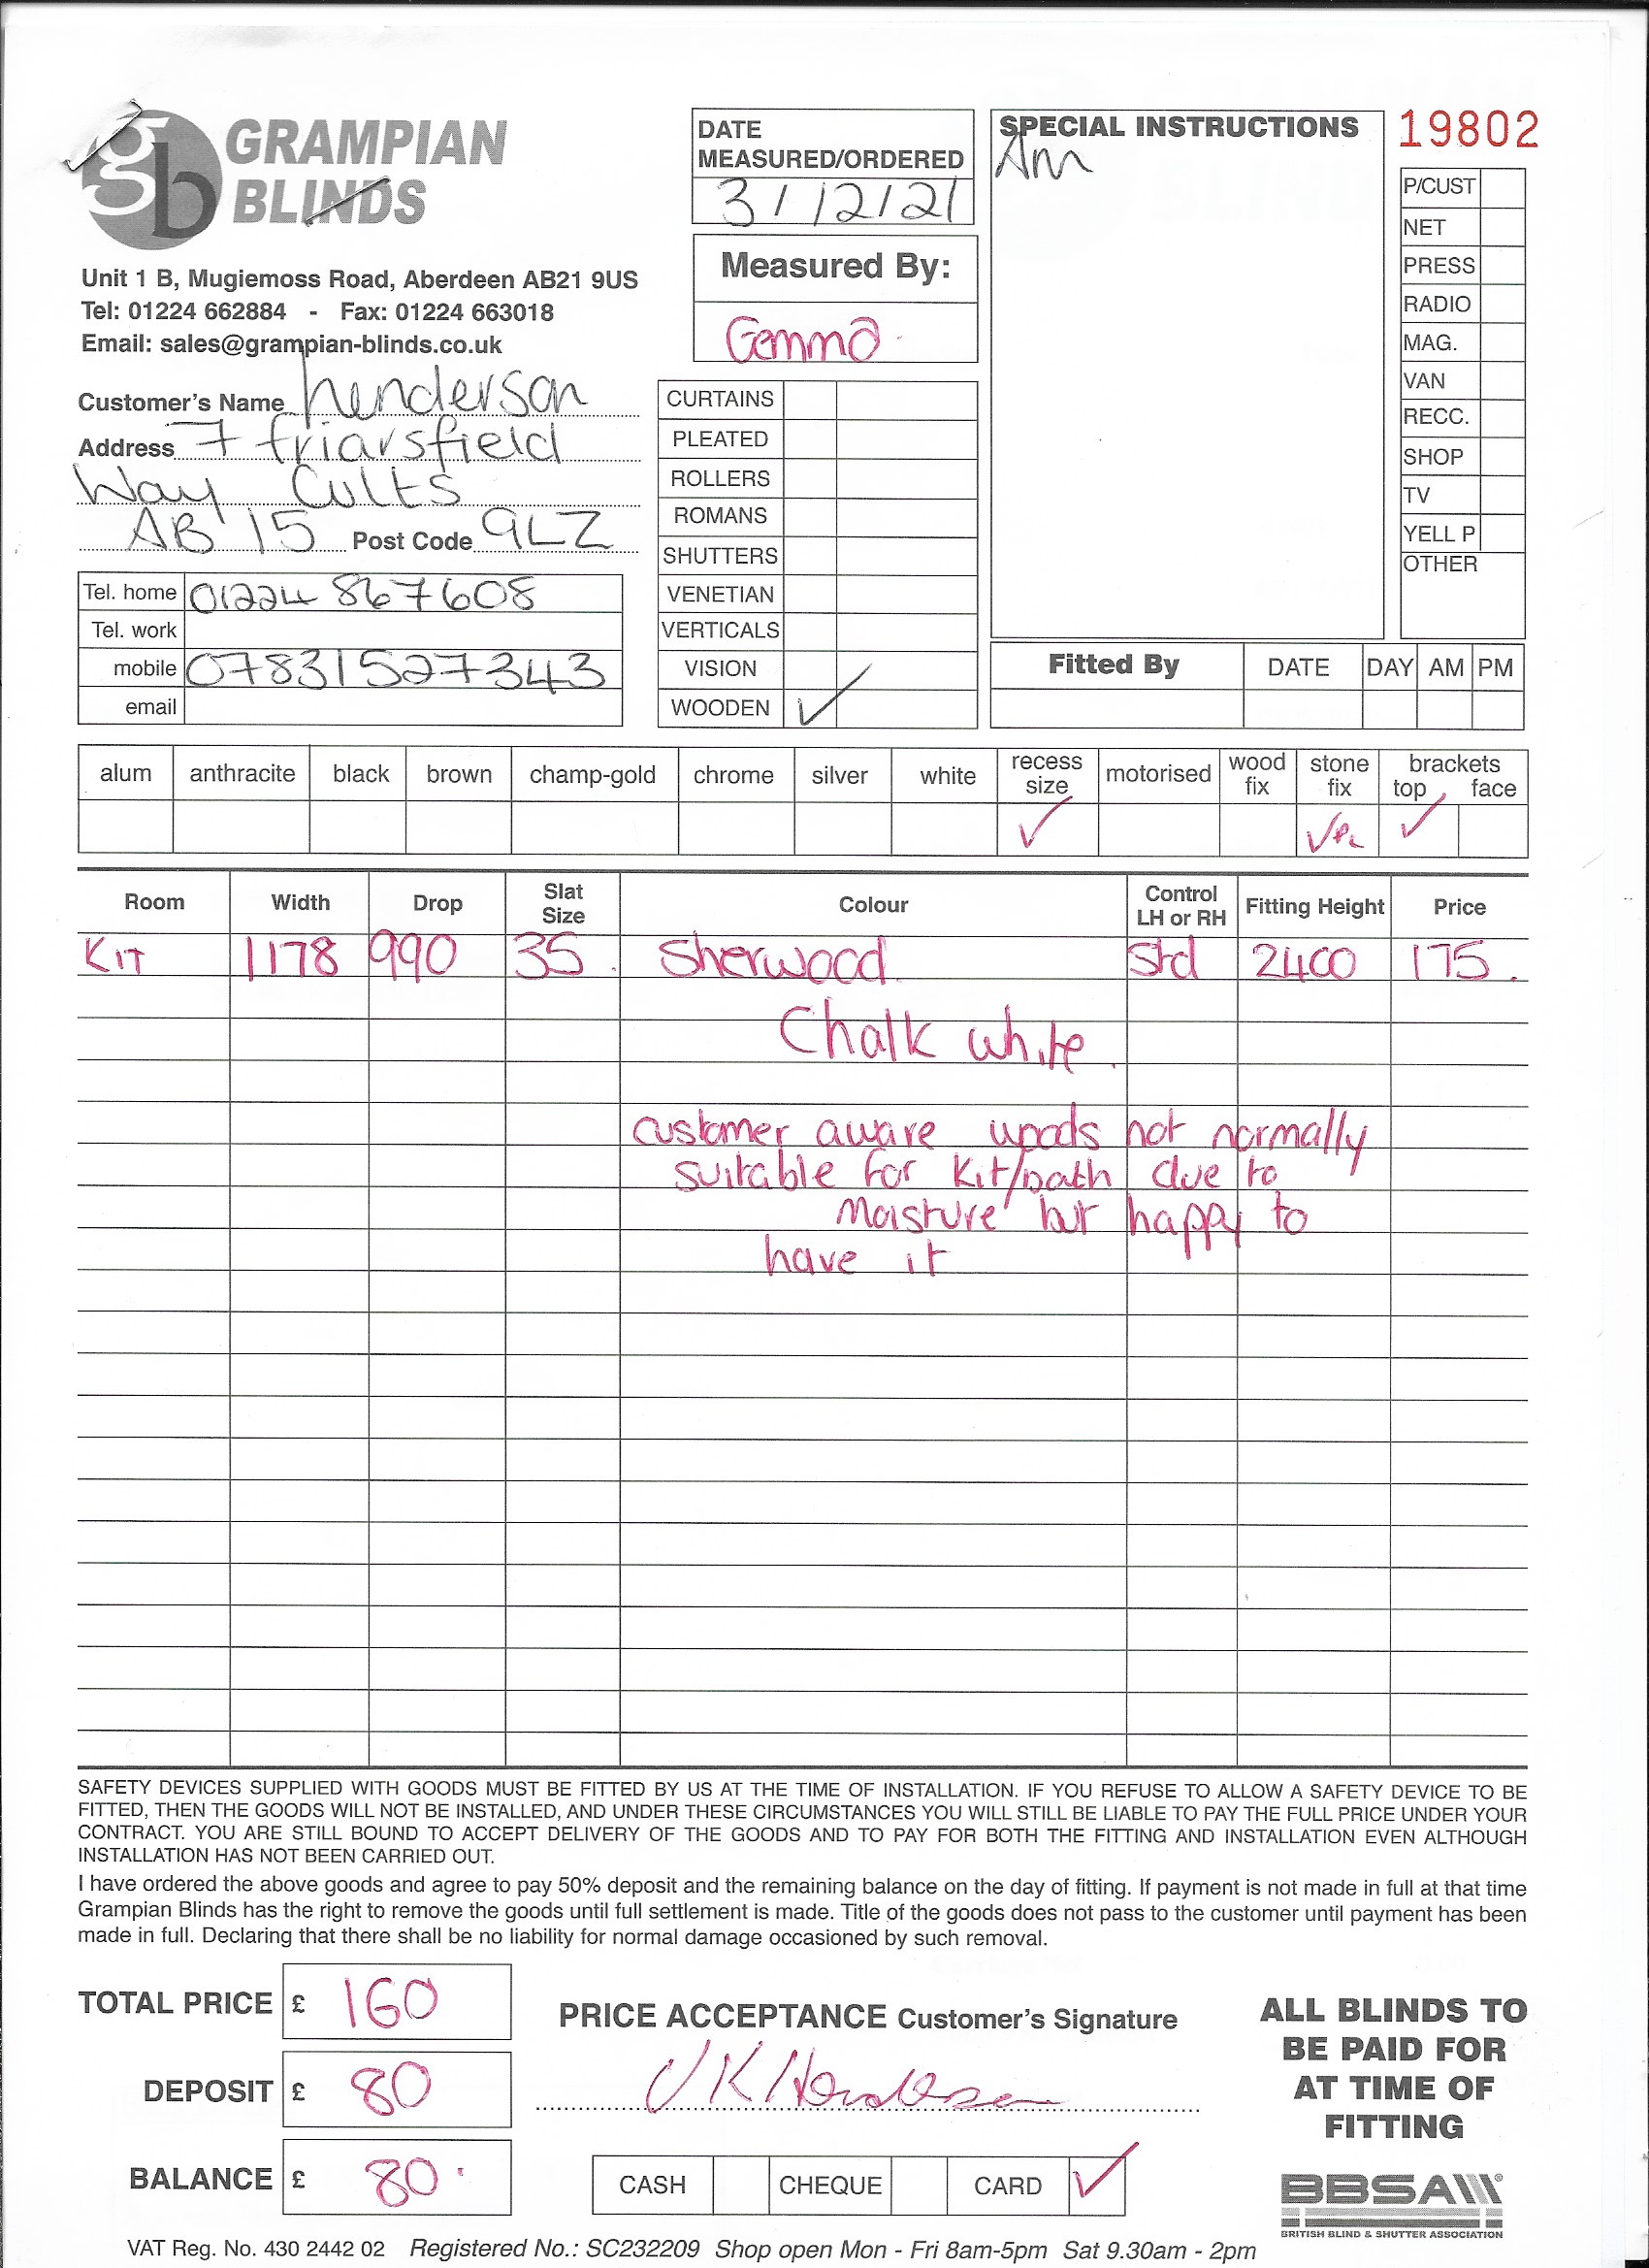 gb GRAMPIAN
BLINDS
Unit 1 B, Mugiemoss Road, Aberdeen AB21 9US
Tel: 01224 662884 - Fax: 01224 663018
Email: sales@grampian-blinds.co.uk
Customer's Name henderson
Address 7 friarsfield
Way Cults
AB 15 Post Code 9LZ
Tel. home 01224 867608
Tel. work
mobile 07831527343
email
DATE
MEASURED/ORDERED
3/12/21
Measured By:
Gemma
CURTAINS
PLEATED
ROLLERS
ROMANS
SHUTTERS
VENETIAN
VERTICALS
VISION
WOODEN ✓
SPECIAL INSTRUCTIONS
Am
19802
P/CUST
NET
PRESS
RADIO
MAG.
VAN
RECC.
SHOP
TV
YELL P
OTHER
Fitted By DATE DAY AM PM
alum anthracite black brown champ-gold chrome silver white recess size motorised wood fix stone fix brackets top face
✓ ✓ ✓
Room Width Drop Slat Size Colour Control LH or RH Fitting Height Price
KIT 1178 990 35 Sherwood Std 2400 175.
Chalk white
customer aware woods not normally
suitable for Kit/bath due to
Moisture but happy to
have it
SAFETY DEVICES SUPPLIED WITH GOODS MUST BE FITTED BY US AT THE TIME OF INSTALLATION. IF YOU REFUSE TO ALLOW A SAFETY DEVICE TO BE
FITTED, THEN THE GOODS WILL NOT BE INSTALLED, AND UNDER THESE CIRCUMSTANCES YOU WILL STILL BE LIABLE TO PAY THE FULL PRICE UNDER YOUR
CONTRACT. YOU ARE STILL BOUND TO ACCEPT DELIVERY OF THE GOODS AND TO PAY FOR BOTH THE FITTING AND INSTALLATION EVEN ALTHOUGH
INSTALLATION HAS NOT BEEN CARRIED OUT.
I have ordered the above goods and agree to pay 50% deposit and the remaining balance on the day of fitting. If payment is not made in full at that time
Grampian Blinds has the right to remove the goods until full settlement is made. Title of the goods does not pass to the customer until payment has been
made in full. Declaring that there shall be no liability for normal damage occasioned by such removal.
TOTAL PRICE £ 160
DEPOSIT £ 80
BALANCE £ 80
PRICE ACCEPTANCE Customer's Signature
VK Henderson
CASH CHEQUE CARD ✓
ALL BLINDS TO
BE PAID FOR
AT TIME OF
FITTING
BBSA
BRITISH BLIND & SHUTTER ASSOCIATION
VAT Reg. No. 430 2442 02 Registered No.: SC232209 Shop open Mon - Fri 8am-5pm Sat 9.30am - 2pm